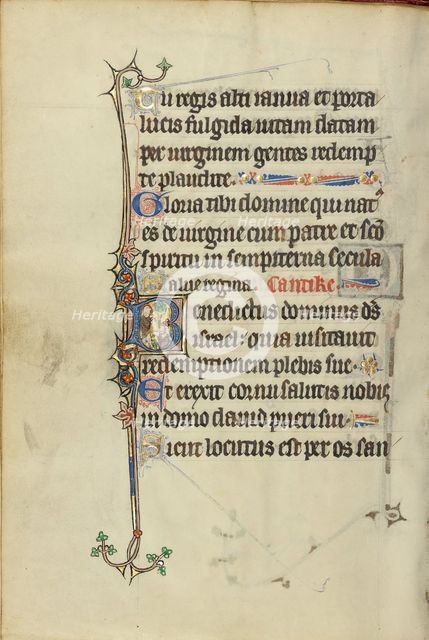 Tu regis alti ianua et porta
lucis fulgida uitam datam
per uirginem gentes redemp
te plaudite.
Gloria tibi domine qui nat
es de uirgine cum patre et sco
spiritu in sempiterna secula
Salue regina. Cantike.
Benedictus dominus ds
israel: quia uisitauit
redemptionem plebis sue.
Et erexit cornu salutis nobis
in domo dauid pueri sui.
Sicut locutus est per os san
Heritage Heritage
Heritage Heritage